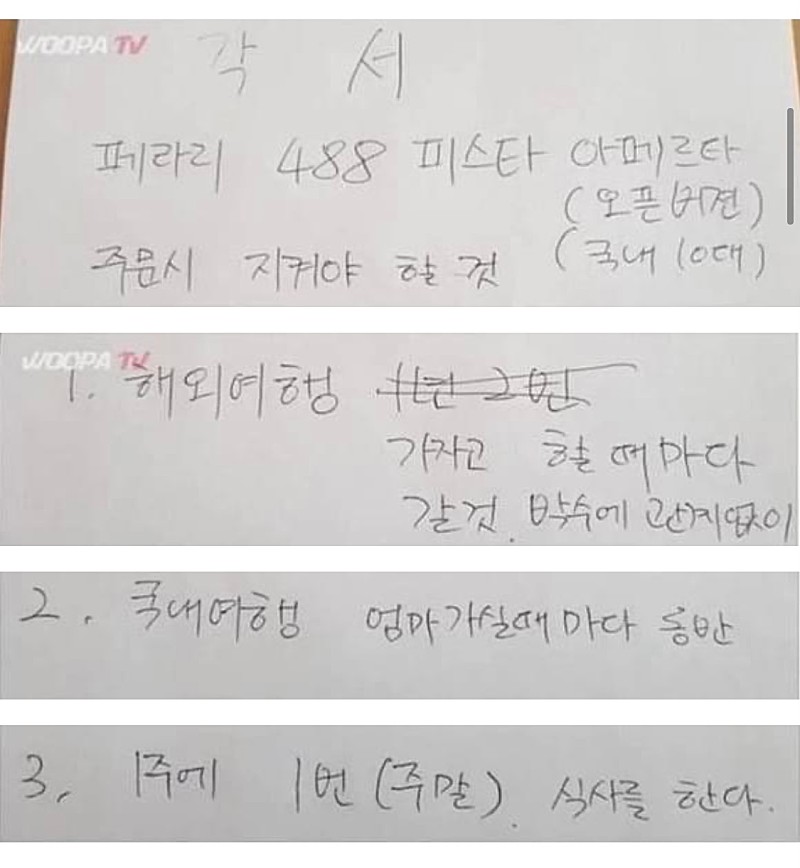 WOOPA TV
각 서
페라리 488 피스타 아페르타
(오픈버젼)
주문시 지켜야 할 것 (국내 10대)
WOOPA TV
1. 해외여행 1년 2번
가자고 할때마다
갈것. 박수에 관계없이
2. 국내여행 엄마가실때마다 동반
3. 1주에 1번 (주말). 식사를 한다.